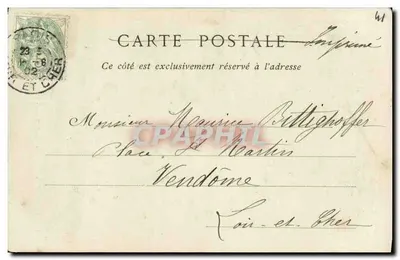 41
CARTE POSTALE Imprimé
Ce côté est exclusivement réservé à l'adresse
23
02
ET CHER
Monsieur Maurice Bittighoffer
CPAPHIL
Place St Martin
Vendôme
Loir-et-Cher